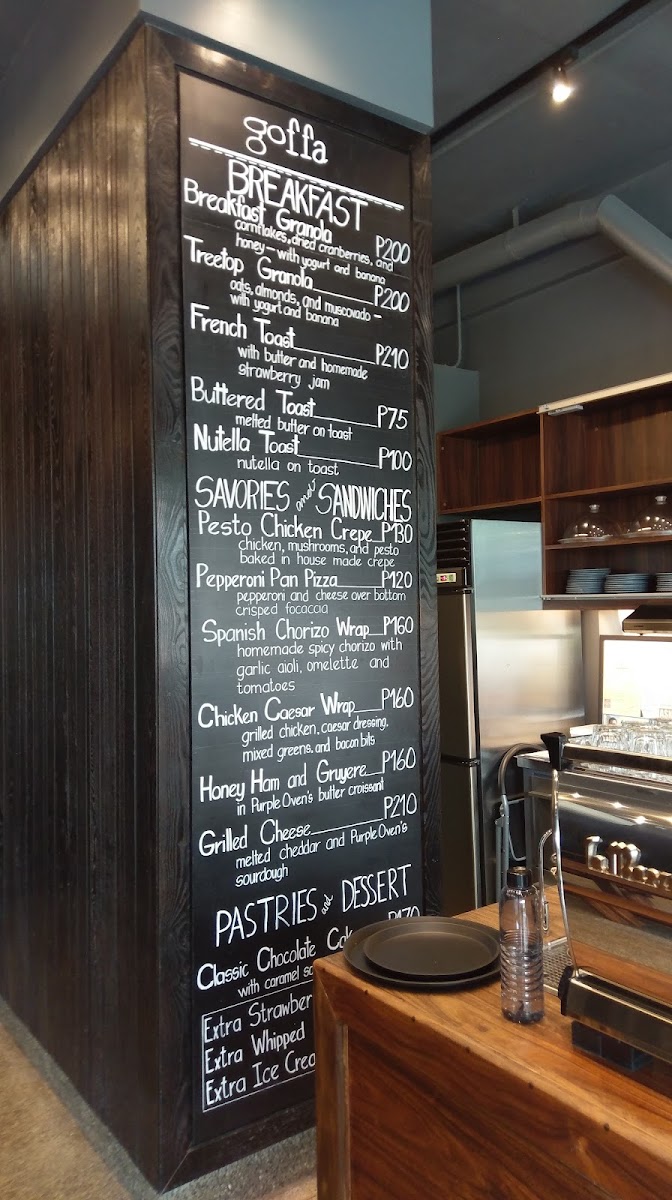 goffa
BREAKFAST
Breakfast Granola P200
cornflakes, dried cranberries, and
honey - with yogurt and banana
Treetop Granola P200
oats, almonds, and muscovado -
with yogurt and banana
French Toast P210
with butter and homemade
strawberry jam
Buttered Toast P75
melted butter on toast
Nutella Toast P100
nutella on toast
SAVORIES and SANDWICHES
Pesto Chicken Crepe P130
chicken, mushrooms, and pesto
baked in house made crepe
Pepperoni Pan Pizza P120
pepperoni and cheese over bottom
crisped focaccia
Spanish Chorizo Wrap P160
homemade spicy chorizo with
garlic aioli, omelette and
tomatoes
Chicken Caesar Wrap P160
grilled chicken, caesar dressing,
mixed greens, and bacon bits
Honey Ham and Gruyere P160
in Purple Oven's butter croissant
Grilled Cheese P210
melted cheddar and Purple Oven's
sourdough
PASTRIES and DESSERT
Classic Chocolate Cak P170
with caramel sa
Extra Strawber
Extra Whipped
Extra Ice Crea